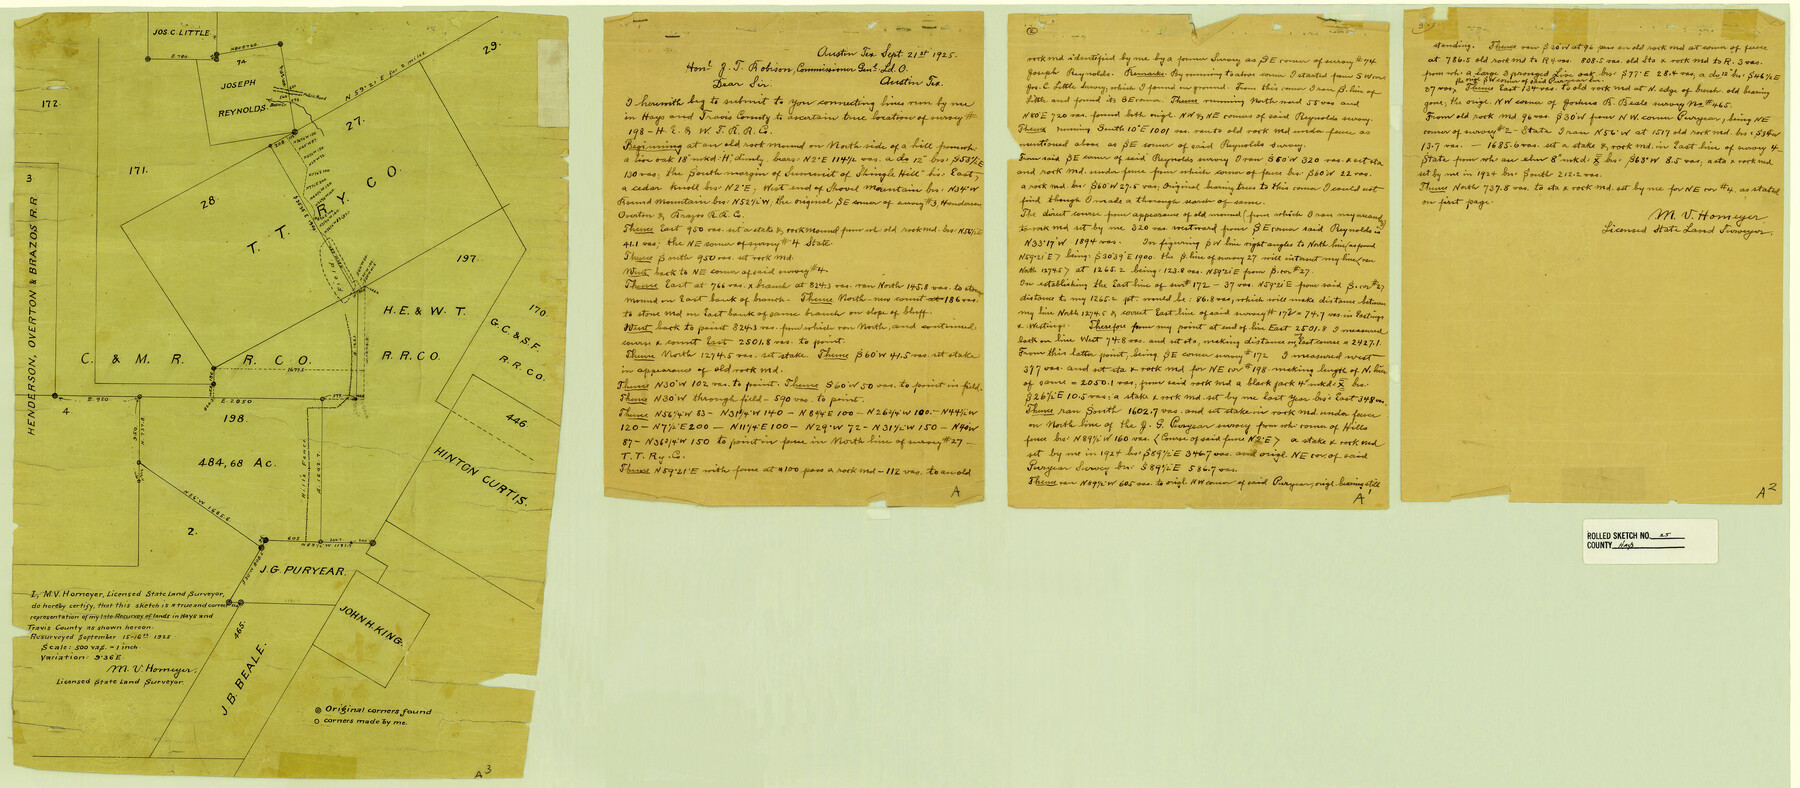 JOS C. LITTLE.
E 780
74
JOSEPH
REYNOLDS
29.
N 59-21 E for 2 miles
172
27.
171.
3
28.
T. T. R Y. C O.
Field
197.
HENDERSON, OVERTON & BRAZOS R.R
H. E. & W. T.
R. R. CO.
170.
G. C. & S. F.
R. R. CO.
C. & M. R. R. C O.
4
E. 950
E. 2050
198.
484,68 Ac.
446
HINTON CURTIS.
Hills Fence
N 56 W 1685.6
2.
605
J. G. PURYEAR.
JOHN H. KING.
465.
J. B. BEALE.
I, M.V. Homeyer, Licensed State Land Surveyor,
do hereby certify, that this sketch is a true and correct
representation of my late Resurvey of lands in Hays and
Travis County as shown hereon.
Resurveyed September 15-16th 1925
Scale: 500 vas. = 1 inch.
Variation: 9°36 E.
M. V. Homeyer.
Licensed State Land Surveyor.
Original corners found
corners made by me.
A 3
Austin Tex Sept. 21st 1925.
Honl. J. T. Robison, Commissioner Genl. Ld. O.
Dear Sir. Austin Tex.
I herewith beg to submit to you connecting lines run by me
in Hays and Travis County to ascertain true location of survey #
198 – H. E. & W. T. R. R. Co.
Beginning at an old rock mound on North side of a hill from wh.
a live oak 18" mkd. H, dimly, bears N 2° E 114½ vas. a do 12" brs. S 53½ E
130 vas; the South margin of Summit of Shingle Hill brs. East;
a cedar knoll brs N 2° E; West end of Shovel Mountain brs. N 34° W
Round Mountain brs N 52½ W, the original SE corner of survey # 3, Henderson
Overton & Brazos R.R. Co.
Thence East 950 vas. set a stake & rock mound from wh old rock md. brs. N 56½ E
41.1 vas; the NE corner of survey # 4 State.
Thence South 950 vas. set rock md.
Went back to NE corner of said survey # 4.
Thence East at 766 vas. x branch at 824.3 vas. ran North 145.8 vas. to stone
mound on East bank of branch – Thence North – new count at 186 vas.
to stone md on East bank of same branch on slope of bluff.
Went back to point 824.3 vas. from which ran North, and continued
course & count East 2501.8 vas. to point.
Thence North 1274.5 vas. set stake. Thence S 60° W 41.5 vas. set stake
in appearance of old rock md.
Thence N 30° W 102 vas. to point. Thence S 60° W 50 vas. to point in field.
Thence N 30° W through field – 590 vas. to point.
Thence N 56¼ W 83 – N 31¾ W 140 – N 8¼ E 100 – N 26¾ W 100 – N 44½ W
120 – N 7½ E 200 – N 11¼ E 100 – N 29° W 72 – N 31½ W 150 – N 40 W
87 – N 36¼ W 150 to point in fence in North line of survey # 27 –
T. T. Ry. Co.
Thence N 59°21' E with fence at 100 pass a rock md – 112 vas. to an old
A
2
rock md identified by me by a former Survey as SE corner of survey # 74
Joseph Reynolds. Remarks: By running to above corner I started from SW cor.
Jos. C Little survey, which I found on ground. From this corner I ran S. line of
Little and found its SE corner. Thence running North md 55 vas and
N 80 E 720 vas. found both origl. NW & NE corners of said Reynolds survey.
Thence running South 10° E 1001 vas. ran to old rock md under fence as
mentioned above as SE corner of said Reynolds survey.
From said SE corner of said Reynolds survey I ran S 60° W 320 vas. & set sta
and rock md. under fence from which corner of fence brs. S 60° W 22 vas.
a rock md brs S 60° W 27.5 vas; Original bearing trees to this corner I could not
find though I made a thorough search of same.
The direct course from appearance of old mound (from which I ran my meanders)
to rock md set by me 320 vas westward from SE corner said Reynolds is
N 33°17' W 1894 vas. In figuring SW line right angles to North line (as found
N 59°21' E) being: S 30°39' E 1900. the S. line of survey 27 will intersect my line (ran
North 1274.5) at 1265.2 being: 123.8 vas. N 59°21' E from S. cor # 27.
In establishing the East line of sur # 172 – 37 vas. N 59°21' E from said S. cor # 27
distance to my 1265.2 pt. would be: 86.8 vas, which will make distance between
my line North 1274.5 & correct East line of said survey # 172 = 74.7 vas. in Eastings
& Westings. Therefore from my point at end of line East 2501.8 I measured
back on line West 74.8 vas. and set sta, making distance on East course = 2427.1.
From this latter point, being SE corner survey # 172 I measured west
377 vas. and set sta & rock md for NE cor # 198 making length of N. line
of same = 2050.1 vas, from said rock md a black jack 4" mkd. X brs.
S 26½ E 10.5 vas; a stake & rock md. set by me last year brs East 348 vas.
Thence ran South 1602.7 vas. and set stake in rock md. under fence
on North line of the J. G. Puryear survey from wh corner of Hills
fence brs. N 89½ W 160 vas. (Course of said fence N 2° E) a stake & rock md
set by me in 1924 brs. S 89½ E 346.7 vas. and origl NE cor. of said
Puryear Survey brs. S 89½ E 586.7 vas.
Thence ran N 89½ W 605 vas. to origl NW corner of said Puryear, origl. bearing still
A 1
3
standing. Thence ran S 30 W at 96 pass an old rock md at corner of fence
at 786.5 old rock md to R 4 vas. 808.5 vas. old sta & rock md to R. 3 vas.
from wh. a large 3 pronged live oak brs. S 77° E 28.4 vas, a do 12" brs. S 46½ E
37 vas, the origl SW corner of said Puryear sur.
Thence East 134 vas. to old rock md at N. edge of brush old bearing
gone; the origl. NW corner of Joshua B. Beale survey No # 465.
From old rock md 96 vas. S 30° W from NW. corner Puryear, being NE
corner of survey # 2 – State I ran N 56° W at 1517 old rock md. brs. S 34 W
13.7 vas. – 1685.6 vas. set a stake & rock md. in East line of survey 4
State from wh. an elm 8" mkd. X brs. S 63° W 8.5 vas, a sta & rock md
set by me in 1924 brs South 212.2 vas.
Thence North 737.8 vas. to sta & rock md. set by me for NE cor # 4. as stated
on first page.
M. V. Homeyer
Licensed State Land Surveyor.
A 2
ROLLED SKETCH NO. 25
COUNTY Hays